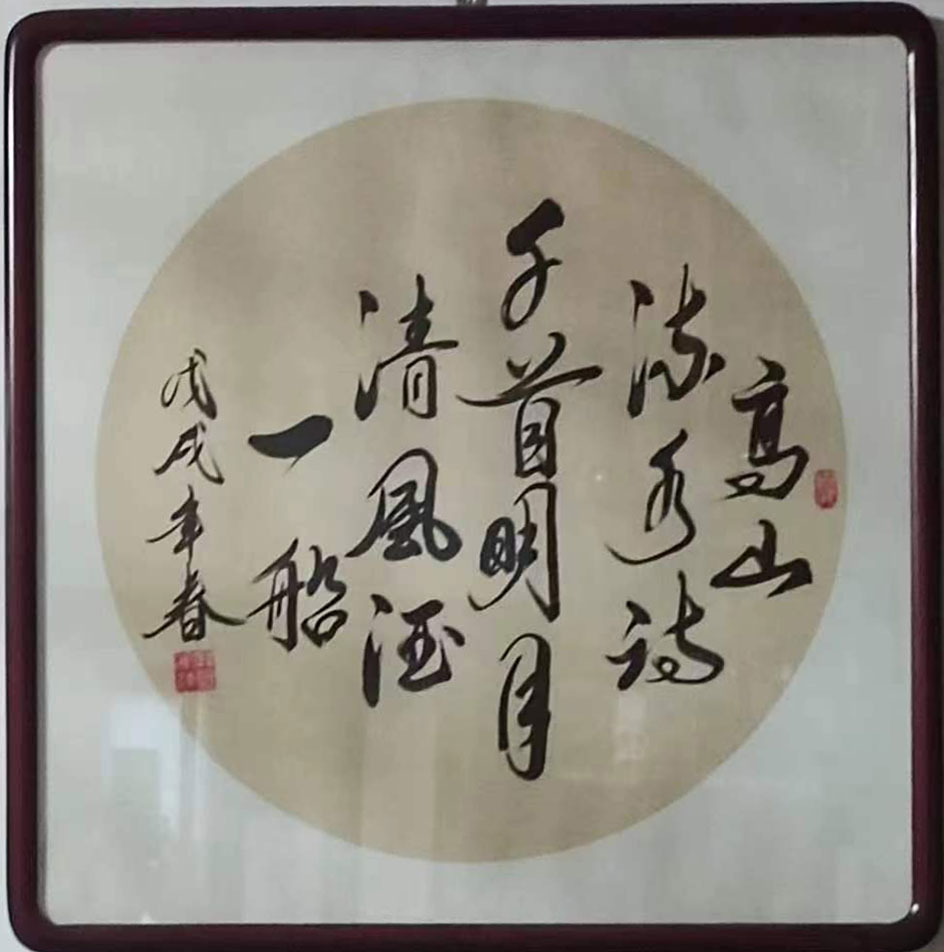 高山
流水詩
千首明月
清風酒
一船
戊戌年春